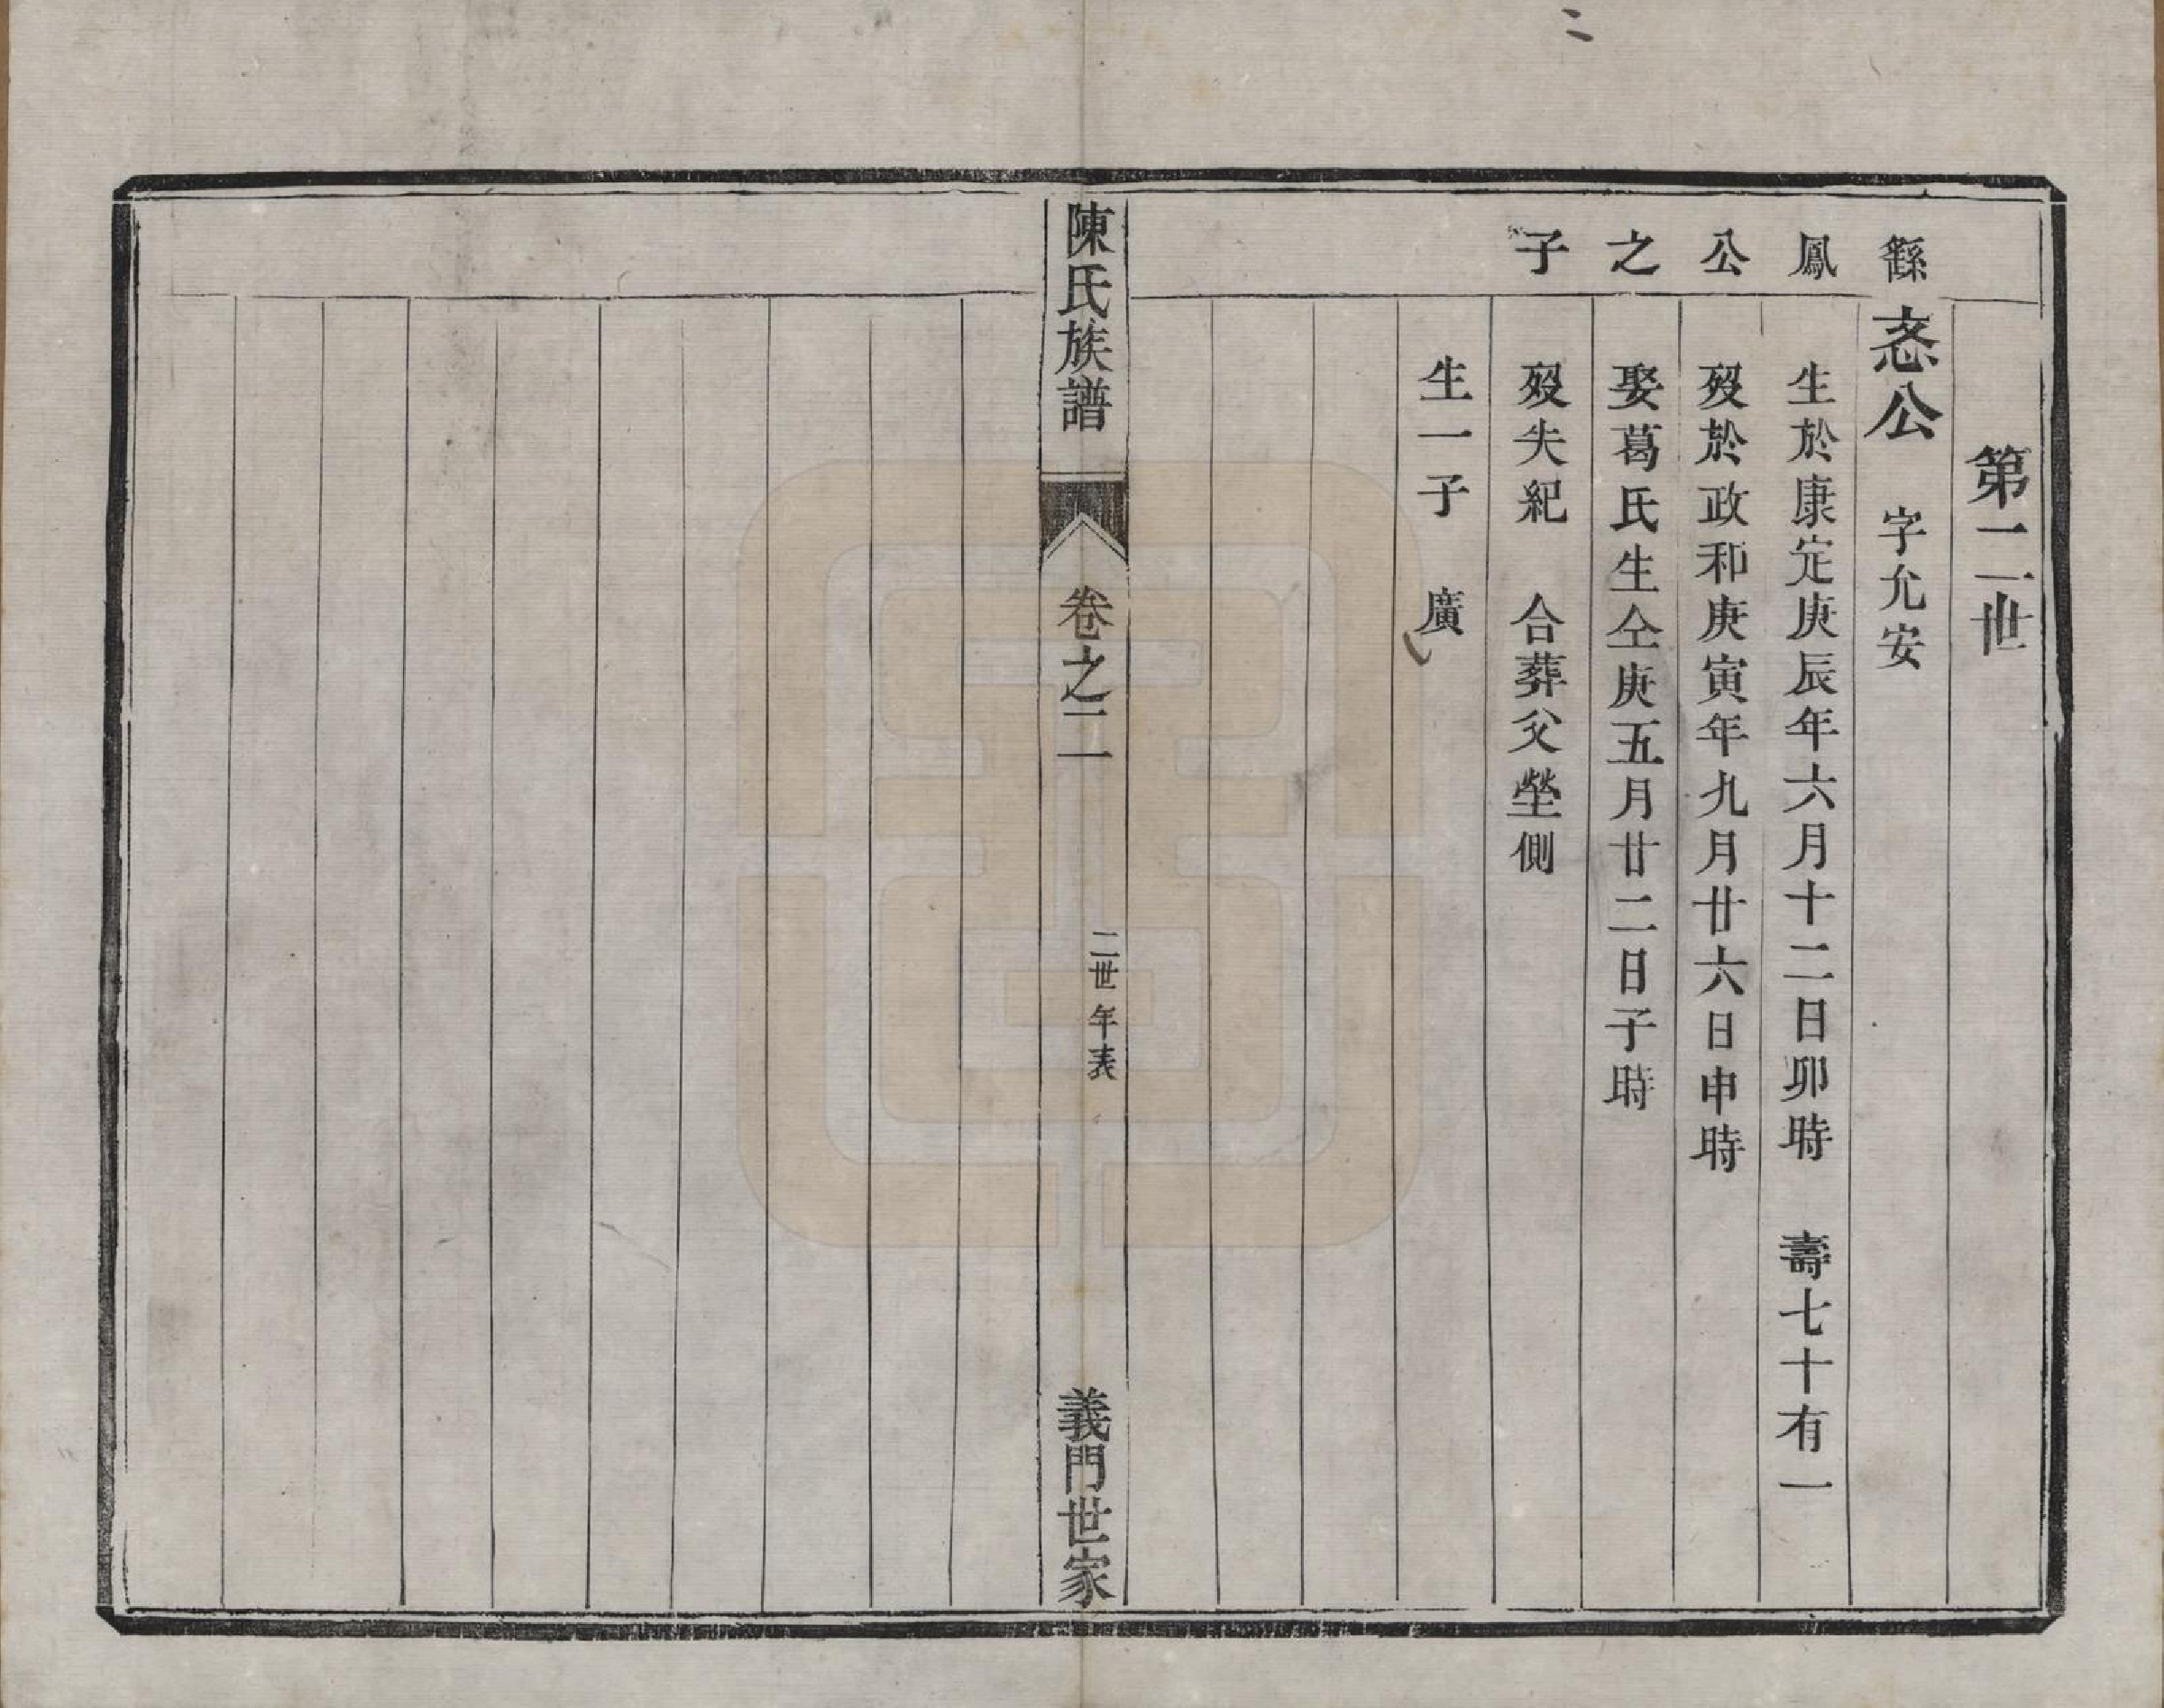 第二世
繇鳳公之子
忞公 字允安
生於康定庚辰年六月十二日卯時 壽七十有一
歿於政和庚寅年九月廿六日申時
娶葛氏生仝庚五月廿二日子時
歿失紀 合葬父塋側
生一子 廣
陳氏族譜 卷之二 二世年表 義門世家